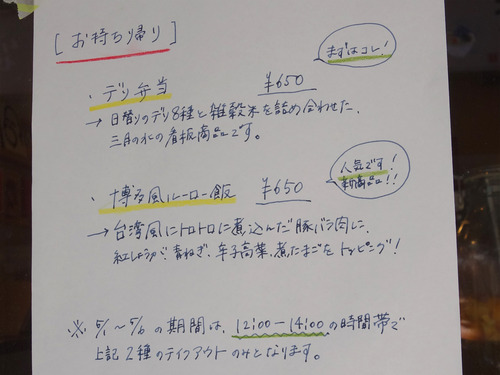 [お持ち帰り]
まずはコレ!
・デリ弁当 ¥650
→日替りのデリ8種と雑穀米を詰め合わせた、
三月の水の看板商品です。
人気です!
新商品!!
・博多風ルーロー飯 ¥650
→台湾風にトロトロに煮込んだ豚バラ肉に、
紅しょうが、青ねぎ、辛子高菜、煮たまごをトッピング!
※5/1～5/6の期間は、12:00-14:00の時間帯で
上記2種のテイクアウトのみとなります。